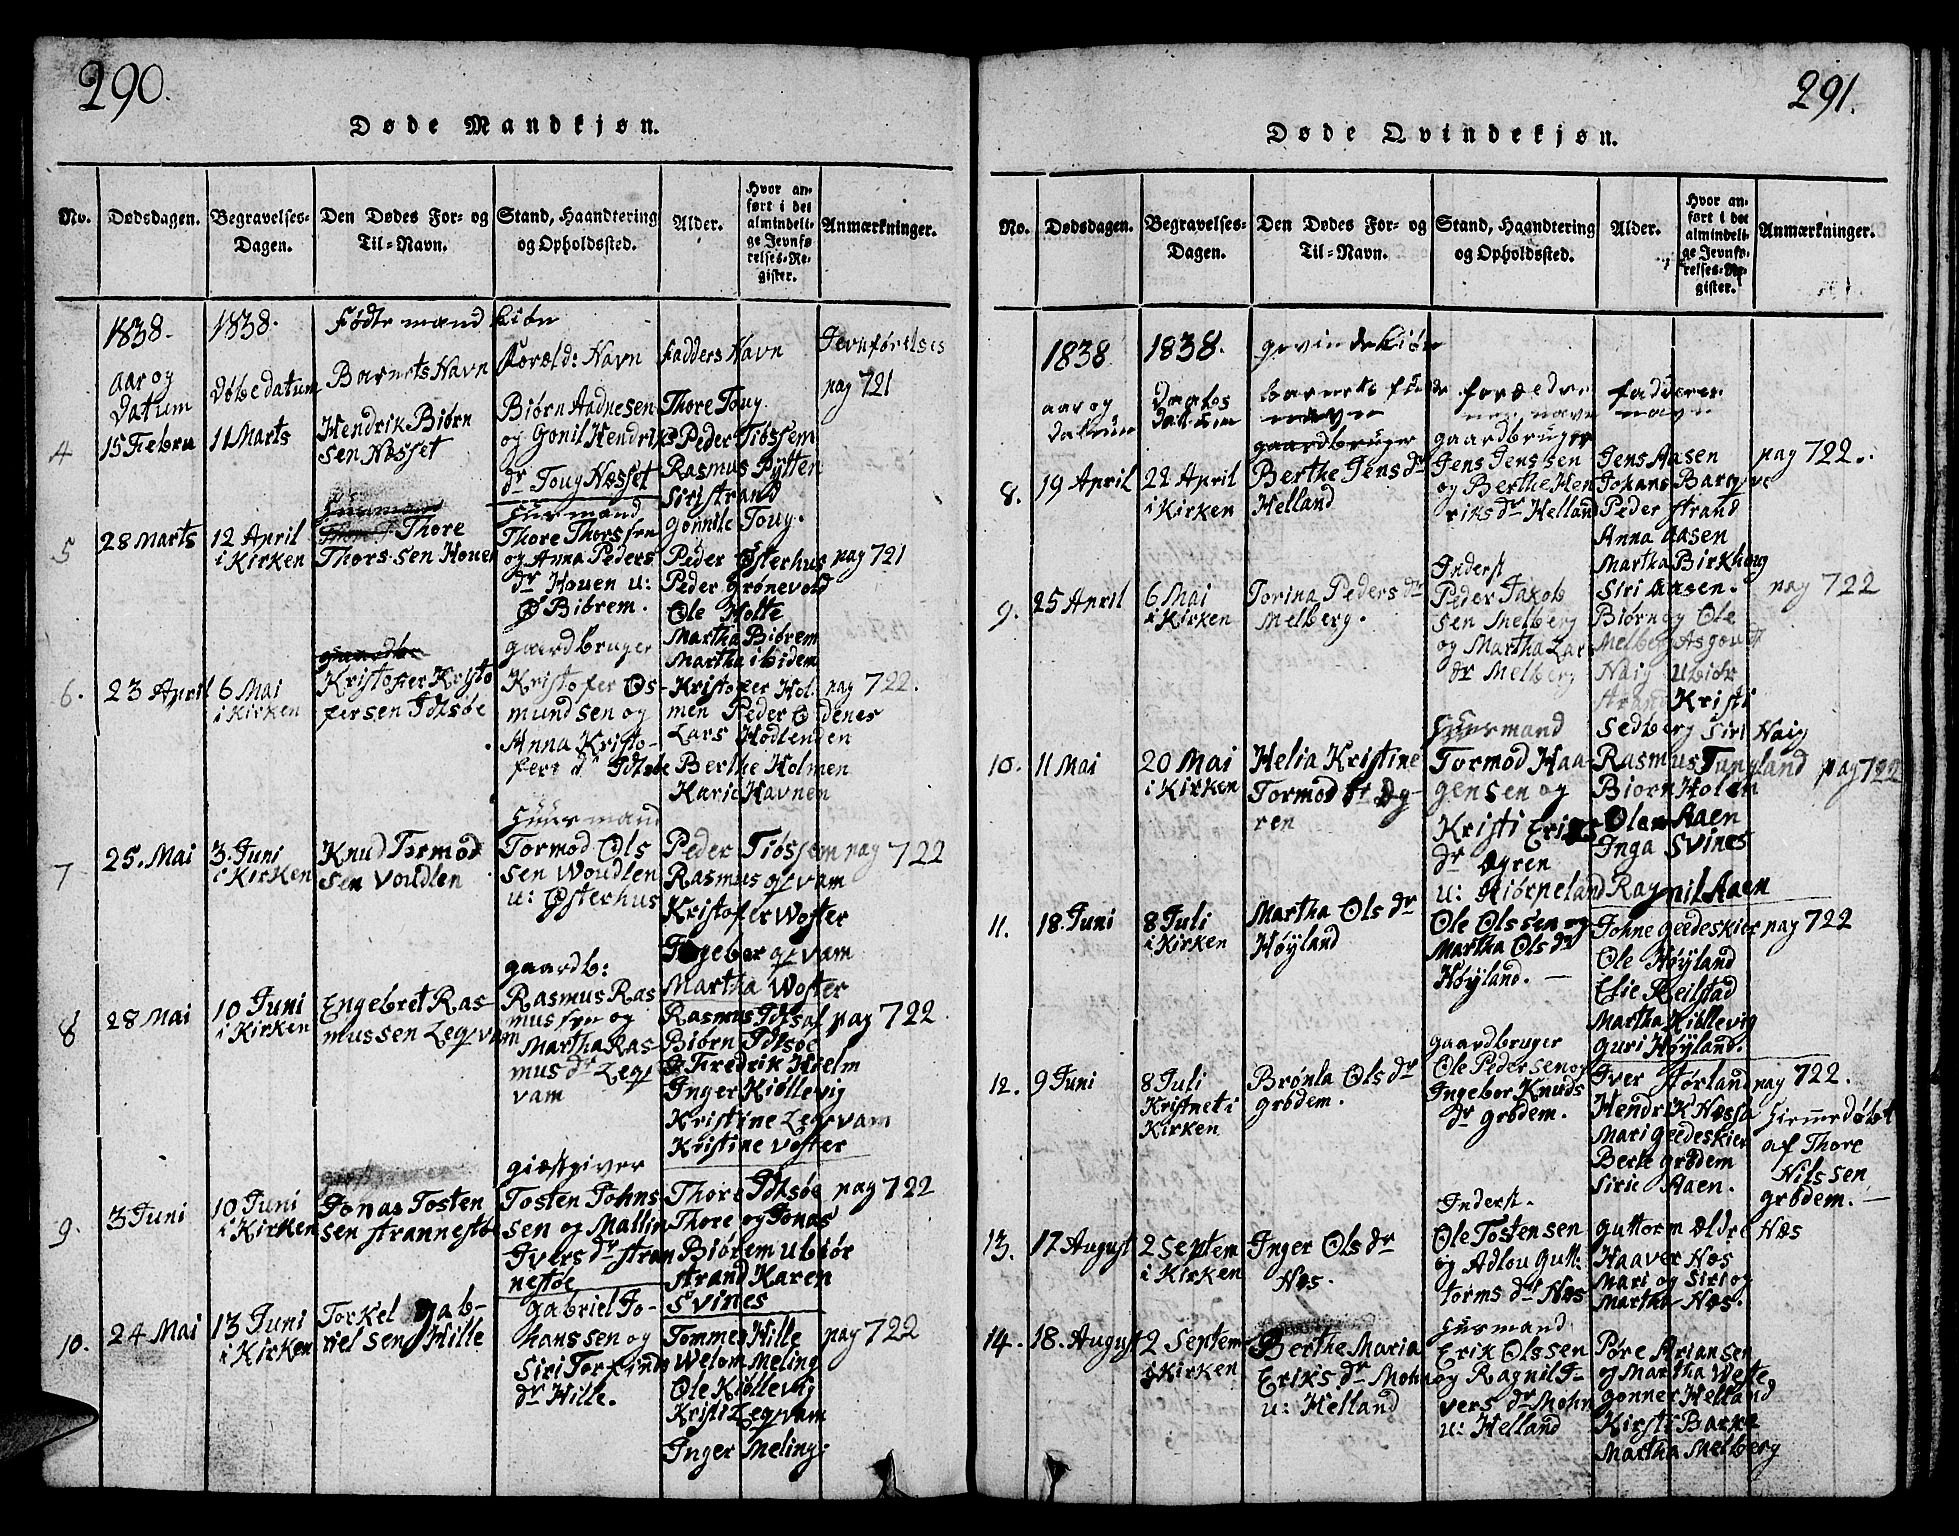 290.
Døde Mandkjøn.
No.
Dødsdagen.
Begravelses-
Dagen.
Den Dødes For- og
Til-Navn.
Stand, Haandtering
og Opholdssted.
Alder.
Hvor an-
ført i det
almindeli-
ge Jevnfø-
relses-Re-
gister.
Anmærkninger.
1838.
1838.
Fødte mand kiøn
aar og
datum
døbe datum
Barnets Navn
Foræld: Navn
Fadders Navn
Jevnførelses
pag 721
4
15 Febru
11 Marts
Hendrik Biørn
sen Næsset
Biørn Aadnesen
og Gonil Hendriks
dr Toug Næsset
Thore Toug
Peder Tiøssem
Rasmus Pytten
Siri strand
Gonnile Toug.
5
28 Marts
12 April
i Kirken
Thore
Thors sen Houen
Huusmand
Thore Thorssen
og Anna Peders
dr Houen u:
Ø Biørem.
Peder Østerhus
Peder Grønevold
Ole Holte
Martha Biørem
Martha ibidem
pag 721
6.
23 April
6 Mai
i Kirken
Kristofer Kristo
fersen Idtsøe
gaardbruger
Kristofer Os-
mundsen og
Anna Kristo-
fers dr Idtsøe
Kristofer Hol-
men Peder Odenes
Lars Hodlenden
Berthe Holmen
Karie Havnen
pag 722.
7
25. Mai
3. Juni
i Kirken
Knud Tormod
sen Voudlen
Huusmand
Tormod Ols
sen Woudlen
u: Østerhus
Peder Tiøssem
Rasmus qvam
Kristofer Woster
Ingebor qvam
Martha Woster
pag 722
8
28 Mai
10 Juni
i Kirken
Engebret Ras-
mussen Legvam
gaardb:
Rasmus Ras
mussen og
Martha Ras-
mus dr Leg
vam
Rasmus Idtsøe
Biørn Idtsøe
Fredrik Holm
Inger Kiøllevig
Kristine Legvam
Kristine voster
pag 722
9.
3 Juni
10 Juni
i Kirken
Jonas Tosten
sen strannesøe
giæstgiver
Tosten Johns-
sen og Mallin
Ivers dr stran
nesøe
Thore Idtsøe
Thore og Jonas
Biørem u biør
strand Karen
Svines
pag 722
10.
24 Mai
13 Juni
i Kirken
Torkel gab-
rielsen Hille
Gabriel Jo-
hanssen og
Siri Torfinds
dr Hille.
Tommes Hille
Welom Meling
Ole Kiøllevig
Kristi Legvam
Inger Meling.
pag 722
291.
Døde Qvindekjøn.
No.
Dødsdagen.
Begravelses-
Dagen.
Den Dødes For- og
Til-Navn.
Stand, Haandtering
og Opholdssted.
Alder.
Hvor an-
ført i det
almindeli-
ge Jevnfø-
relses-Re-
gister.
Anmærkninger.
1838
1838.
qvindekiøn
aar og
datum
Daabs
datum
barnets
navn
forældre
navn
fadderes
navn
gaardbruger
8.
19 April
22 April
i Kirken
Berthe Jens dr
Helland
gaardbruger
Jens Jenssen
og Berthe Hen
riks dr Helland
Jens Aasen
Johans Barque
Peder strand
Anna Aasen
Martha Birkhoug
Siri Aasen.
pag 722.
9.
25 April
6 Mai
i Kirken
Torina Peders dr
Melberg.
Inderst
Peder Jakob
sen Melberg
og Martha Lars
dr Melberg
Biørn og Ole
Melberg Asgout
Naig Ubiør
Strand Kristi
Sedberg Siri Naig
pag 722
10.
11 Mai
20 Mai
i Kirken
Helia Kristine
Tormod dr Øy-
ren
Huusmand
Tormod Haa-
gensen og
Kristi Eriks
dr Øyren
u: Hiørneland
Rasmus Tungland
Biorn Holen
Olen Aaen
Inga Svines
Ragnil Aaen
pag 722
11.
18. Juni
8 Juli
i Kirken
Martha Ols dr
Høyland
Ole Olssen og
Martha Ols dr
Høyland.
Johne Geedeskier
Ole Høyland
Elie Reilstad
Martha Kiøllevig
Guri Høyland.
pag 722
12.
9 Juni
8 Juli
Kristnet i
Kirken
Brønla Ols dr
grødem.
gaardbruger
Ole Pedersen og
Ingebor Knuds
dr grødem.
Iver Jørland
Hendrik Næssa
Mari Geedeskier
Berte grødem
Sirie Aaen.
pag 722.
Hiemedøbt
af Thore
Nilssen
grødem.
13.
17 August
2 Septem
i Kirken
Inger Ols dr
Næs.
Inderst.
Ole Tostensen
og Adlou Gut-
torms dr Næs
Guttorm Ældre Næs
Haaver Næs
Mari og Siri og
Martha Næs.
14.
18. August
2 Septem
i Kirken
Berthe Maria
Eriks dr Mohn
u: Helland
Huusmand
Erik Olssen
og Ragnil I-
vers dr Mohn
u: Helland
Pøre Ariansen
og Martha Wette
gonner Helland
Kirsti Barke
Martha Melberg